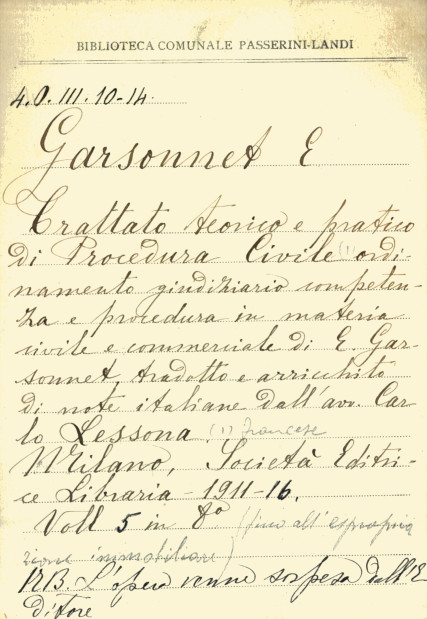 BIBLIOTECA COMUNALE PASSERINI-LANDI
4.O.III.10-14.
Garsonnet E
Trattato teorico e pratico
di Procedura Civile (1) ordi-
namento giudiziario competen-
za e procedura in materia
civile e commerciale di E. Gar-
sonnet, tradotto e arricchito
di note italiane dall'avv. Car
lo Lessona. (1) francese
Milano, Società Editri-
ce Libraria - 1911-16.
Voll 5 in 8º (fino all'espropria
zione immobiliare)
N.B. L'opera venne sospesa dall'E
ditore